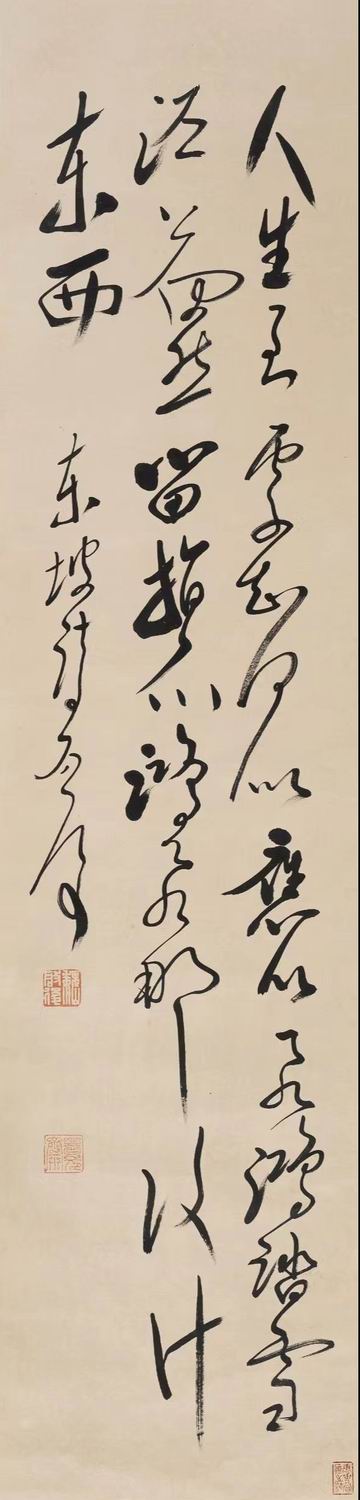 人生到處知何似應似飛鴻踏雪
泥上偶然留指爪鴻飛那復計
東西
東坡詩